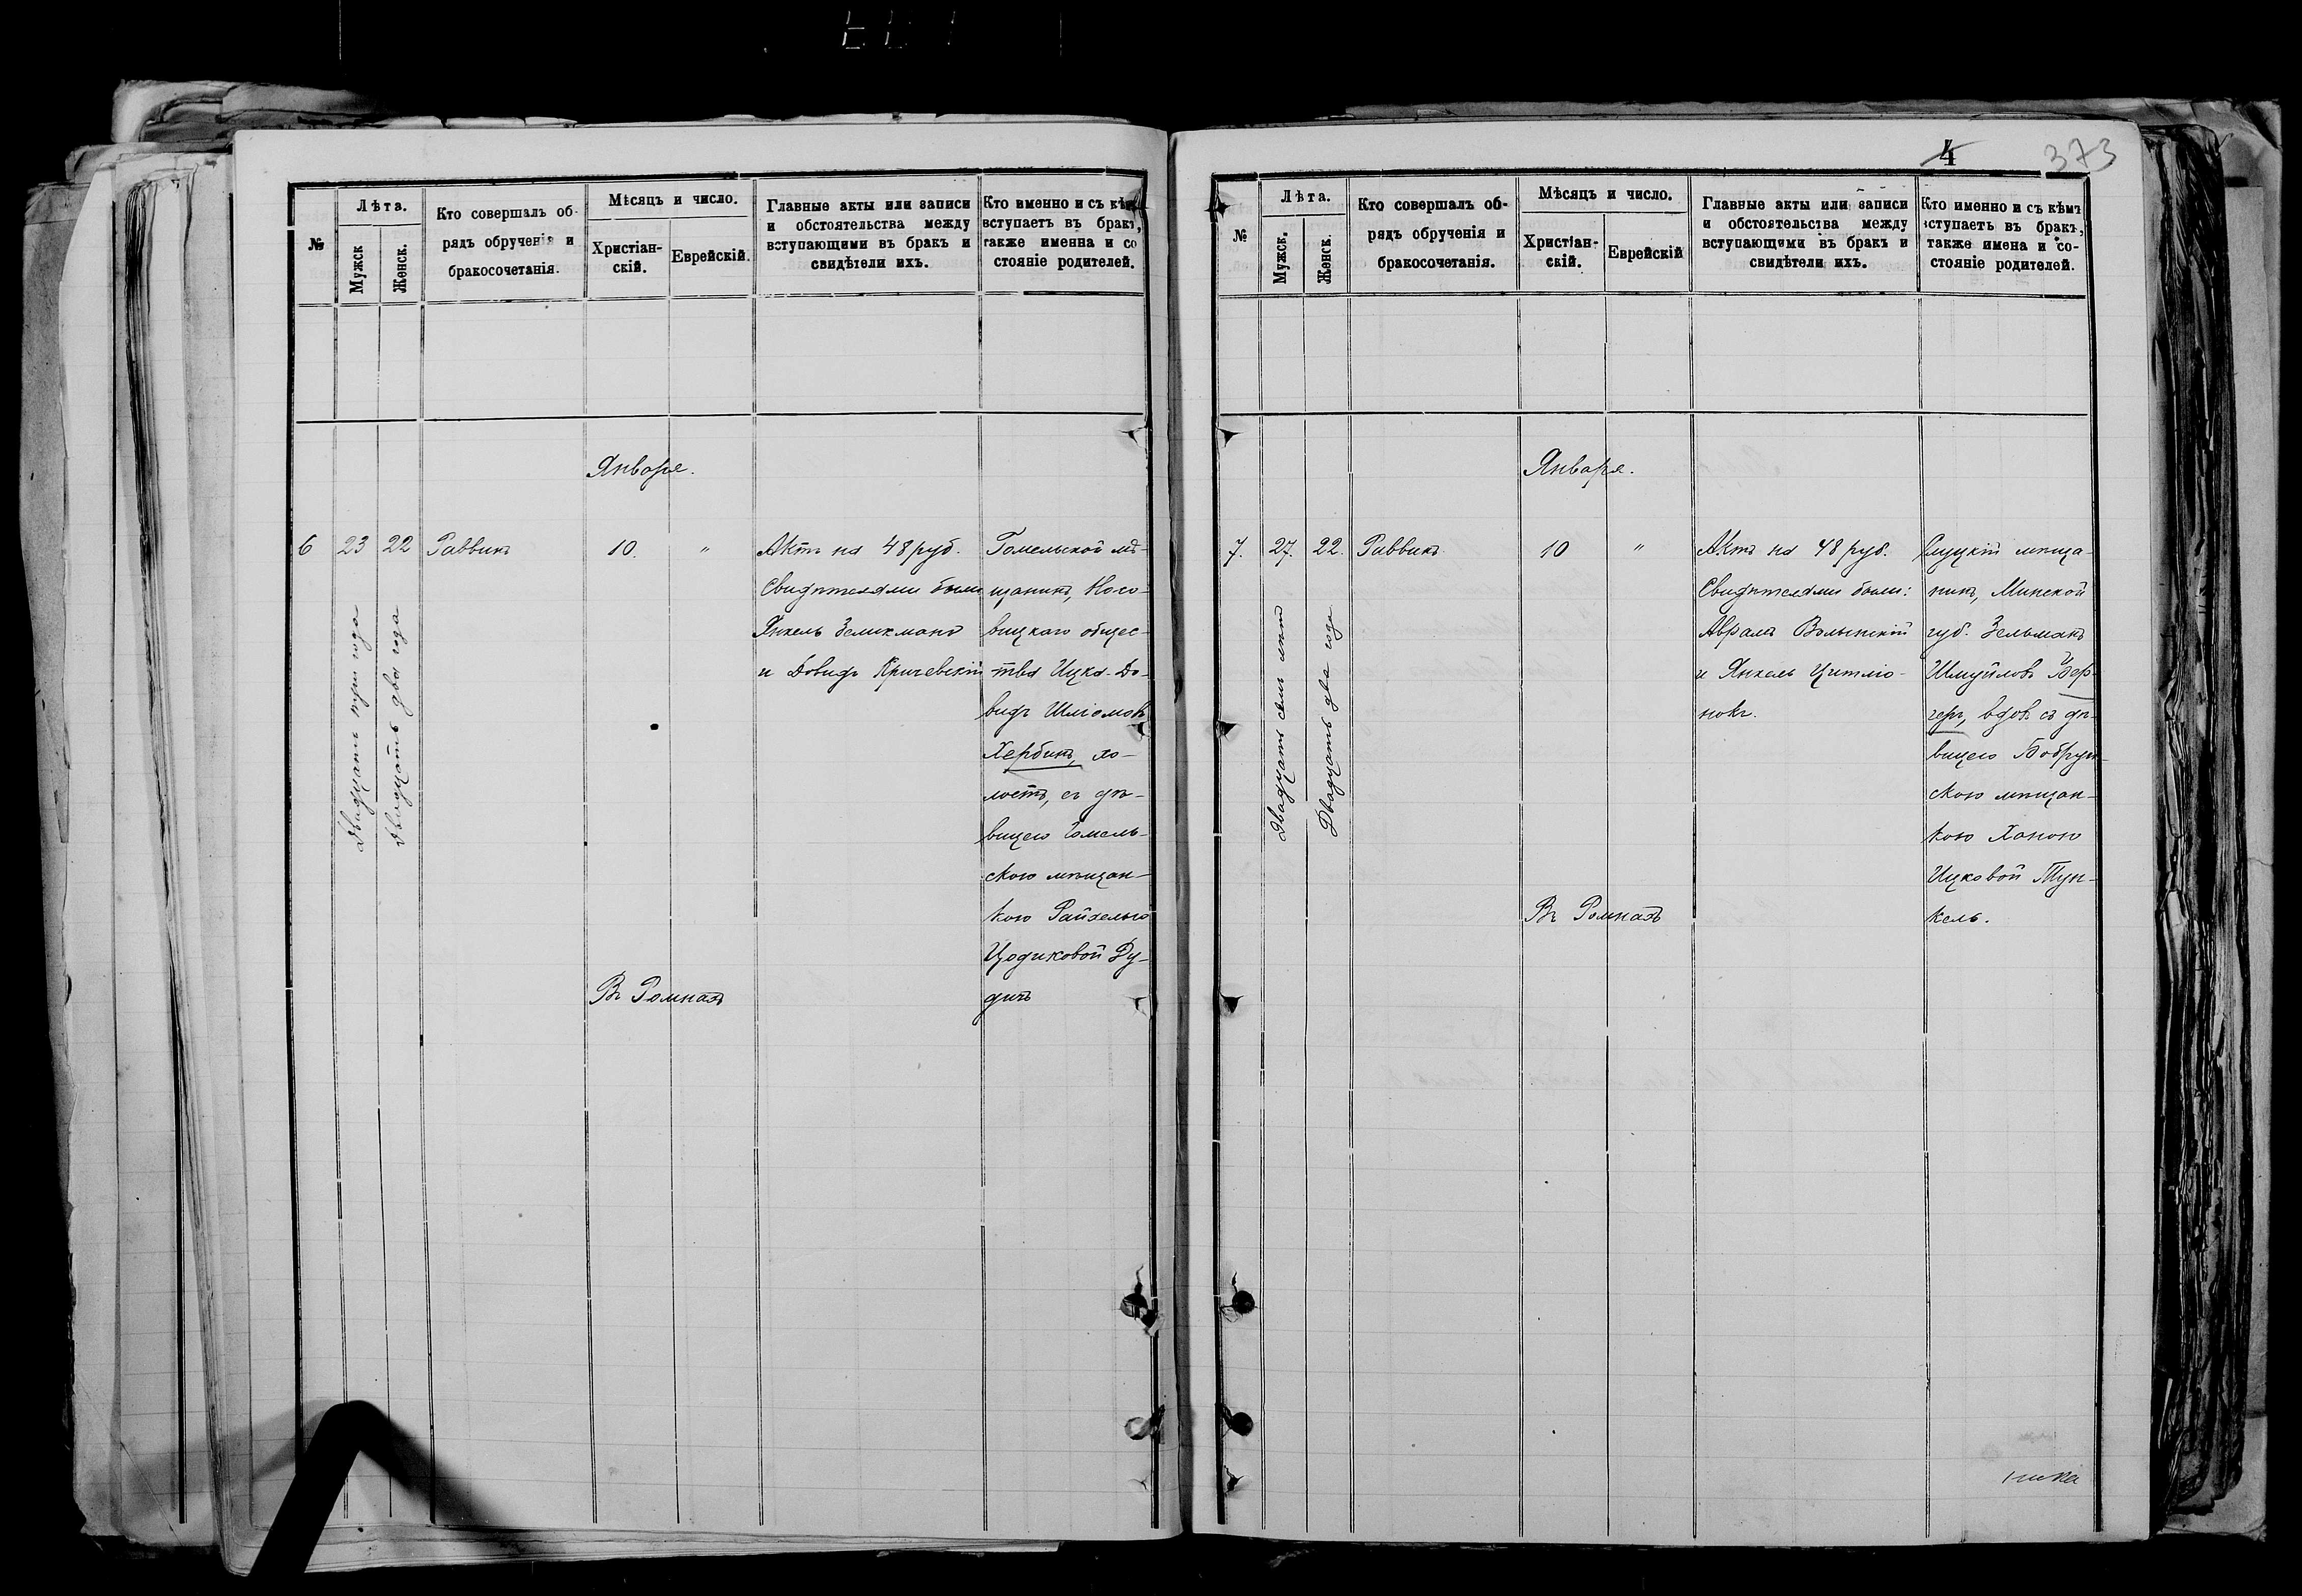 №
Лѣта.
Мужск
Женск.
Кто совершалъ об-
рядъ обрученія и
бракосочетанія.
Мѣсяцъ и число.
Христіан-
скій.
Еврейскій.
Главные акты или записи
и обстоятельства между
вступающими въ бракъ и
свидѣтели ихъ.
Кто именно и съ кѣмъ
вступаетъ въ бракъ,
также именна и со
стояніе родителей.
Января.
6
23
22
Двадцать три года
Двадцать два года
Раввинъ
10.
"
Актъ на 48 руб.
Свидѣтелями были
Янкель Зеликманъ
и Довидъ Кричевскій
Гомельской мѣ-
щанинъ, Носо-
вицкаго общес-
тва Ицка-До-
видъ Шліомовъ
Хербинъ, хо-
лостъ, съ дѣ-
вицею Гомель-
скою мѣщан-
кою Райхелью
Цодиковой Ду-
дичъ
Въ Ромнахъ
4
373
№
Лѣта.
Мужск.
Женск.
Кто совершалъ об-
рядъ обрученія и
бракосочетанія.
Мѣсяцъ и число.
Христіан-
скій.
Еврейскій
Главные акты или записи
и обстоятельства между
вступающими въ бракъ и
свидѣтели ихъ.
Кто именно и съ кѣмъ
вступаетъ въ бракъ,
также имена и со-
стояніе родителей.
Января.
7.
27.
22.
Двадцать семь лѣтъ
Двадцать два года
Раввинъ
10
"
Актъ на 48 руб.
Свидѣтелями были:
Аврамъ Волынскій
и Янкель Цитліо-
нокъ.
Слуцкій мѣща-
нинъ, Минской
губ. Зельманъ
Шмуйловъ Бер-
геръ, вдовъ съ дѣ-
вицею Бобруй-
скою мѣщан-
кою Ханою
Ицковой Тун-
кель.
Въ Ромнахъ